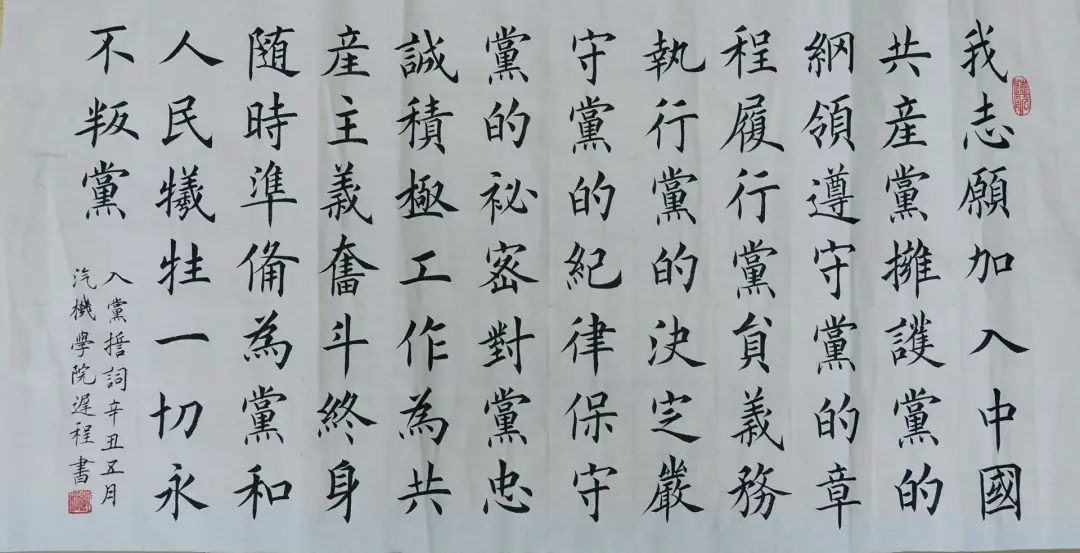 我志願加入中國
共産黨擁護黨的
綱領遵守黨的章
程履行黨員義務
執行黨的決定嚴
守黨的紀律保守
黨的祕密對黨忠
誠積極工作為共
産主義奮斗終身
随時準備為黨和
人民犧牲一切永
不叛黨
入黨誓詞辛丑五月
汽機學院遲程書